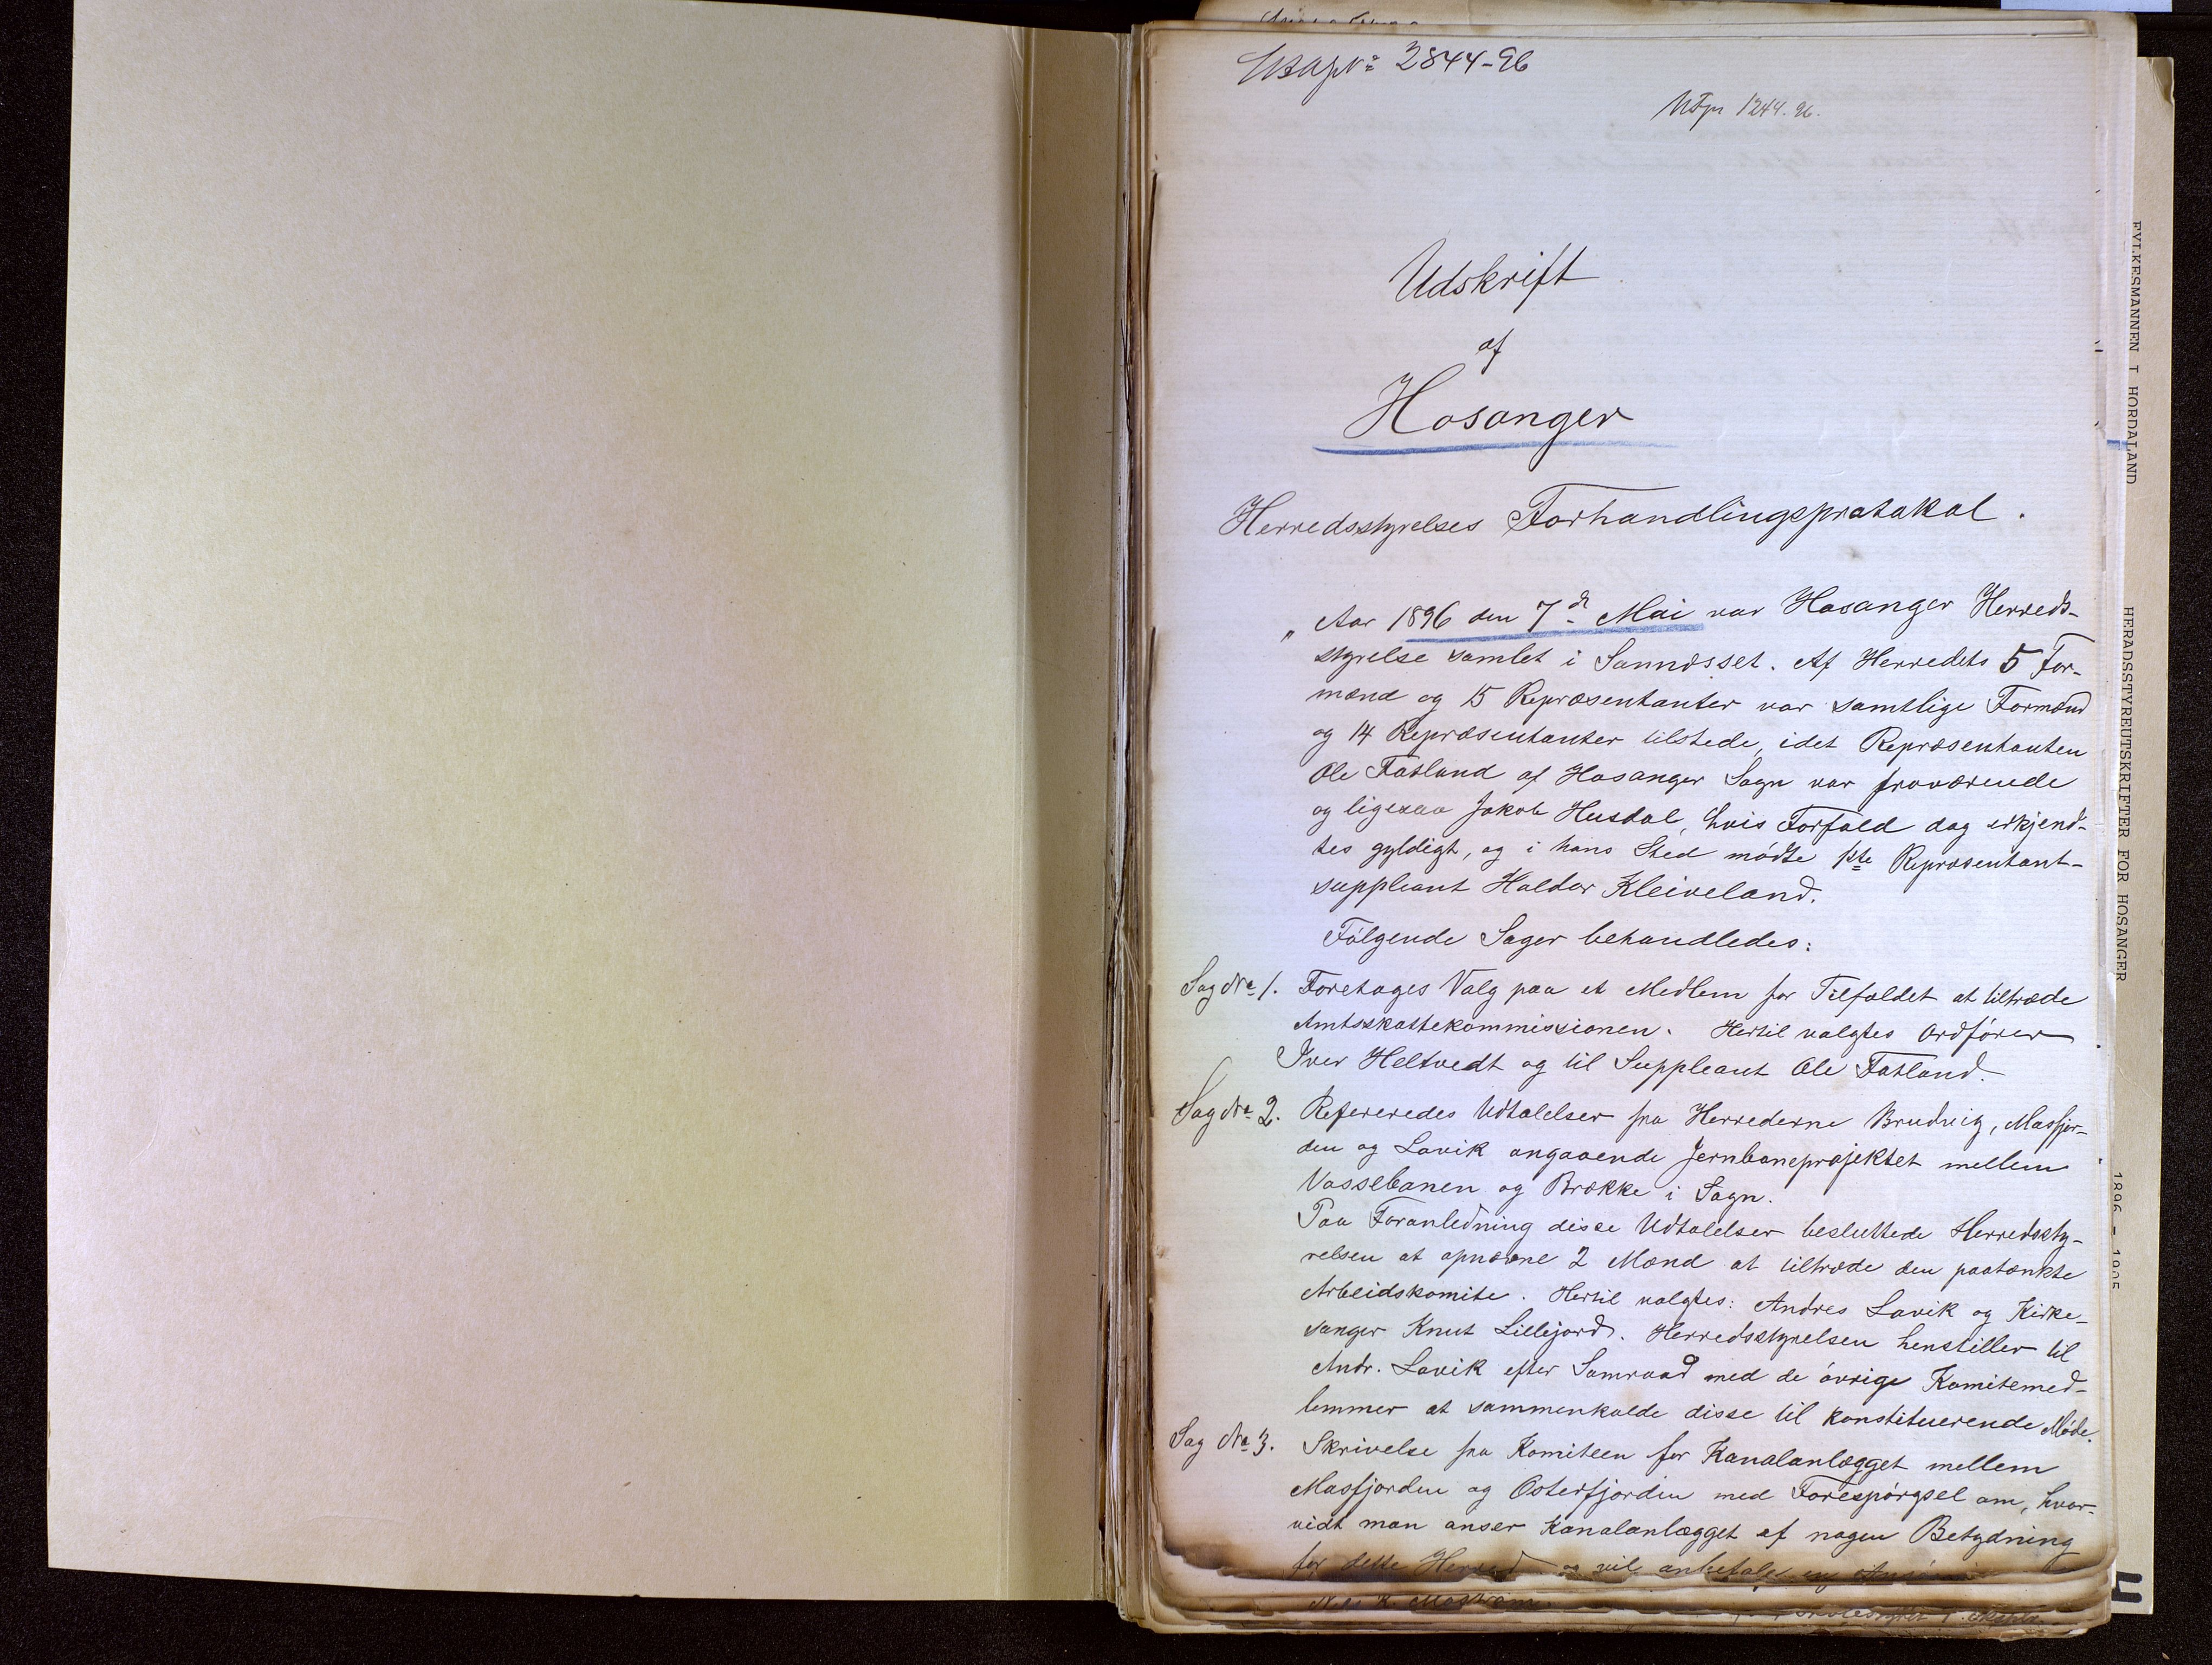 2844-96
1244.96.
Udskrift
af
Hosanger
Herredsstyrelses Forhandlingsprotokol.
„Aar 1896 den 7de Mai var Hosanger Herreds-
styrelse samlet i Sannæsset. Af Herredets 5 For-
mænd og 15 Repræsentanter var samtlige Formænd
og 14 Repræsentanter tilstede, idet Repræsentanten
Ole Fatland af Hosanger Sogn var fraværende
og ligesaa Jakob Husdal, hvis Forfald dog erkjend-
tes gyldigt, og i hans Sted mødte 1ste Repræsentant-
suppleant Haldor Kleiveland.
Følgende Sager behandledes:
Sag No 1. Foretoges Valg paa et Medlem for Tilfældet at tiltræde
Amtsskattekommissionen. Hertil valgtes Ordfører
Iver Heltvedt og til Suppleant Ole Fatland.
Sag No 2. Refereredes Udtalelser fra Herrederne Bruvig, Masfjor-
den og Lavik angaaende Jernbaneprojektet mellem
Vossebanen og Brække i Sogn.
Paa Foranledning disse Udtalelser besluttede Herredssty-
relsen at opnævne 2 Mænd at tiltræde den paatænkte
Arbeidskomite. Hertil valgtes: Andres Lavik og Kirke-
sanger Knut Lillejord. Herredsstyrelsen henstiller til
Andr. Lavik efter Samraad med de øvrige Komitemed-
lemmer at sammenkalde disse til konstituerende Møde.
Sag No 3. Skrivelse fra Komiteen for Kanalanlægget mellem
Masfjorden og Osterfjorden med Forespørgsel om, hvor-
vidt man anser Kanalanlægget af nogen Betydning
for dette Herred og vil anbefale en
FYLKESMANNEN I HORDALAND
HERADSSTYREUTSKRIFTER FOR HOSANGER
1896 - 1905